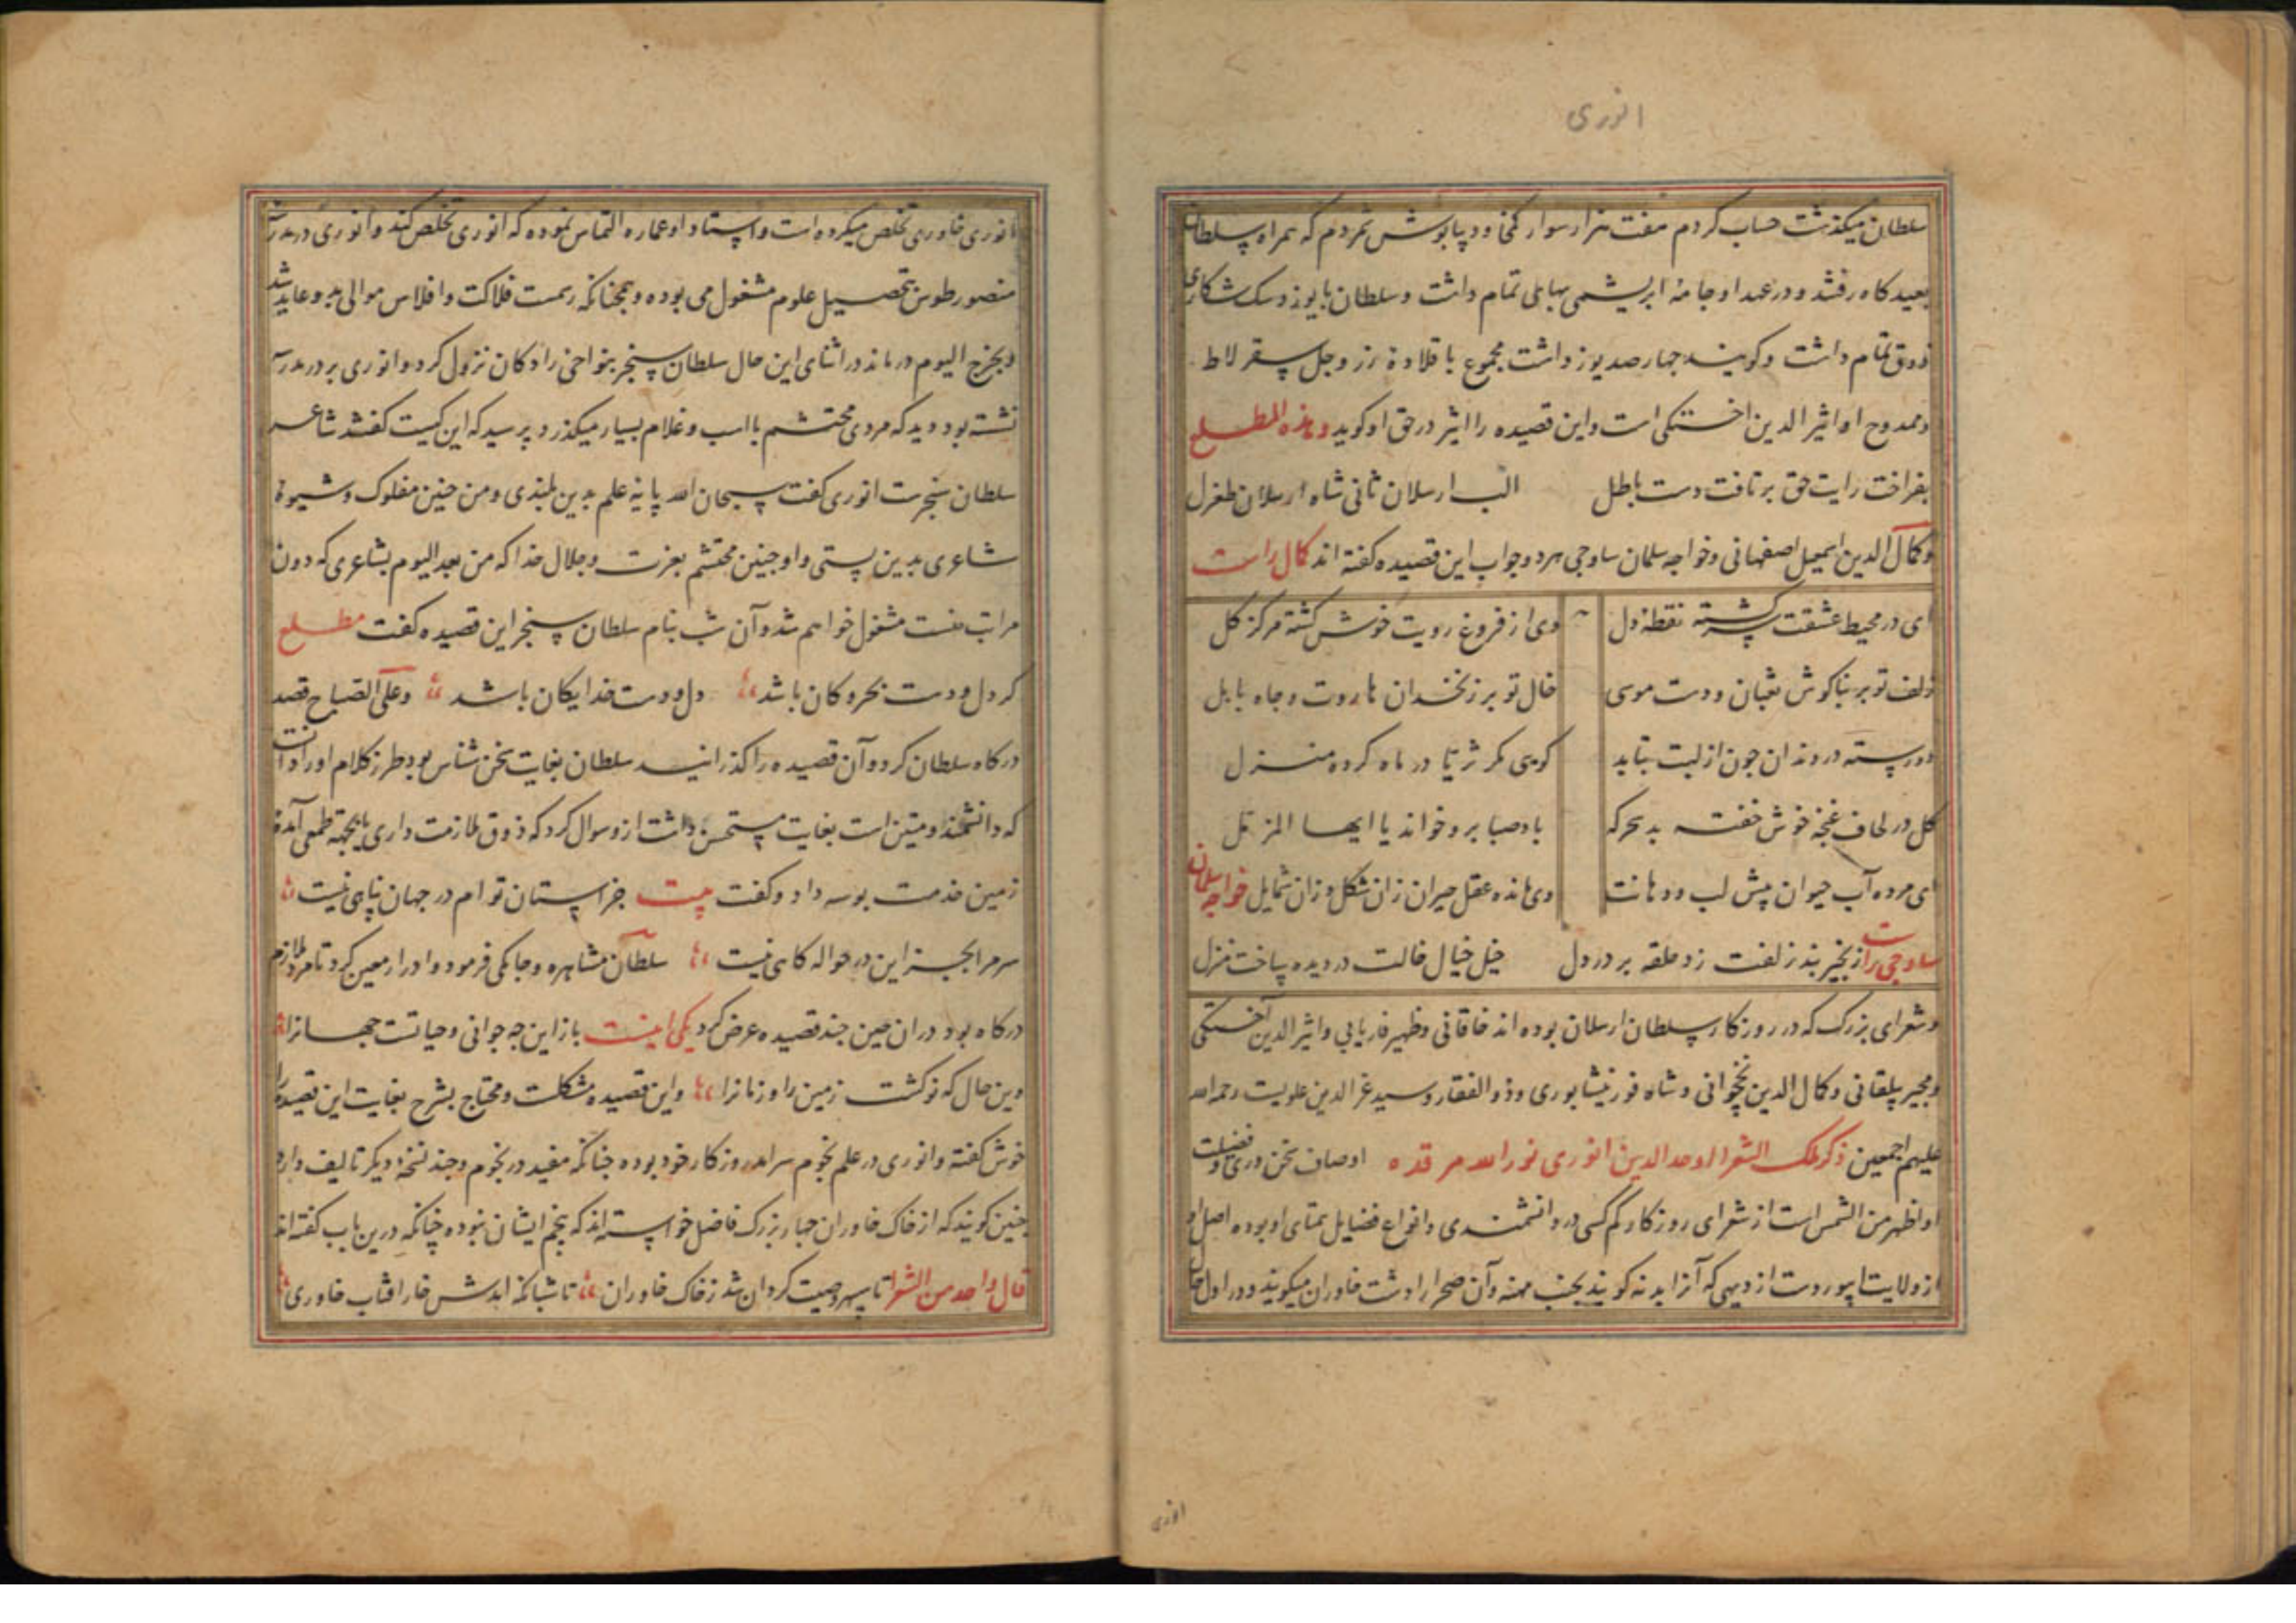 انوری
سلطان میکذشت حساب کردم هفت هزار سوار کمخاو دیباپوش شمردم که همراه سلطان
بصیدکاه رفتند و در عهد او جامهٔ ابریشمی بهایی تمام داشت و سلطان با یوز و سک شکاری
ذوق تمام داشت و کویند جهارصد یوز داشت مجموع با قلادهٔ زر و جل سقرلاط
و ممدوح او اثیر الدین اخسیکتی است و این قصیده را اثیر در حق او کوید و هذه المطلع
بفراخت رایت حق بر تافت دست باطل الب ارسلان ثانی شاه ارسلان طغرل
و کمال الدین اسمعیل اصفهانی و خواجه سلمان ساوجی هر دو جواب این قصیده کفته اند کمال راست
ای در محیط عشقت سرکشته نقطهٔ دل وی از فروغ رویت خوش کشته مرکز کل
زلف تو بر بناکوش ثعبان و دست موسی خال تو بر زنخدان هاروت و جاه بابل
دو رسته در دندان جون از لبت بتابد کویی مکر ثریا در ماه کرده منزل
کل در لحاف غنجه خوش خفته بد سحرکه باد صبا برو خواند یا ایها المزمل
ای مرده آب حیوان پیش لب و دهانت وی مانده عقل حیران زان شکل و زان شمایل خواجه سلمان
ساوجی راست زنجیر بند زلفت زد حلقه بر در دل خیل خیال خالت در دیده ساخت منزل
و شعرای بزرک که در روزکار سلطان ارسلان بوده اند خاقانی و ظهیر فاریابی و اثیر الدین اخسیکتی
و مجیر بیلقانی و کمال الدین نخجوانی و شاه فور نیشابوری و ذو الفقار و سید عز الدین علویست رحمه الله
علیهم اجمعین ذکر ملک الشعرا اوحد الدین انوری نور الله مرقده اوصاف سخن دری و فضیلت
او اظهر من الشمس است از شعرای روزکار کم کسی در دانشمندی و انواع فضایل همتای او بوده اصل او
از ولایت ابیوردست از دیهی که آنرا بدنه کویند بجنب مهنه و آن صحرا را دشت خاوران میکویند و در اول حال
انوری
انوری خاوری تخلص میکرده است و استاد او عماره التماس نموده که انوری تخلص کند و انوری در مدرسهٔ
منصور طوس بتحصیل علوم مشغول می بوده و همجنانکه رسمست فلاکت و افلاس موالی بدو عاید شد
و بخرج الیوم درماند در اثنای این حال سلطان سنجر بنواحی رادکان نزول کرد و انوری بر در مدرسه
نشسته بود دید که مردی محتشم با اسب و غلام بسیار میکذرد پرسید که این کیست کفتند شاعر
سلطان سنجرست انوری کفت سبحان الله پایهٔ علم بدین بلندی و من جنین مفلوک و شیوهٔ
شاعری بدین پستی و او جنین محتشم بعزت و جلال خدا که من بعد الیوم بشاعری که دون
مراتب منست مشغول خواهم شد و آن شب بنام سلطان سنجر این قصیده کفت مطلع
کر دل و دست بحر و کان باشد دل و دست خدایکان باشد و علی الصباح قصد
درکاه سلطان کرد و آن قصیده را کذرانید سلطان بغایت سخن شناس بود طرز کلام او را دانست
که دانشمند و متین است بغایت مستحسن داشت ازو سوال کرد که ذوق ملازمت داری یا بجهة طمعی آمدهٔ
زمین خدمت بوسه داد و کفت بیت جز آستان توام در جهان پناهی نیست
سر مرا بجز این در حواله کاهی نیست سلطان مشاهره و جامکی فرمود و ادرار معین کرد تا مرو ملازم
درکاه بود در ان حین جند قصیده عرض کرد یکی اینست باز این جه جوانی و حیاتست جهانرا
وین حال که نو کشت زمین را و زمانرا و این قصیده مشکلست و محتاج بشرح بغایت این قصیده را
خوش کفته و انوری در علم نجوم سرآمد روزکار خود بوده جنانکه مفید در نجوم و جند نسخهٔ دیکر تالیف دارد
جنین کویند که از خاک خاوران جهار بزرک فاضل خواسته اند که پنجم ایشان نبوده جنانکه درین باب کفته اند
قال واحد من الشعرا تا سپهر صیت کردان شد ز خاک خاوران تا شبانکه آمدش جار آفتاب خاوری